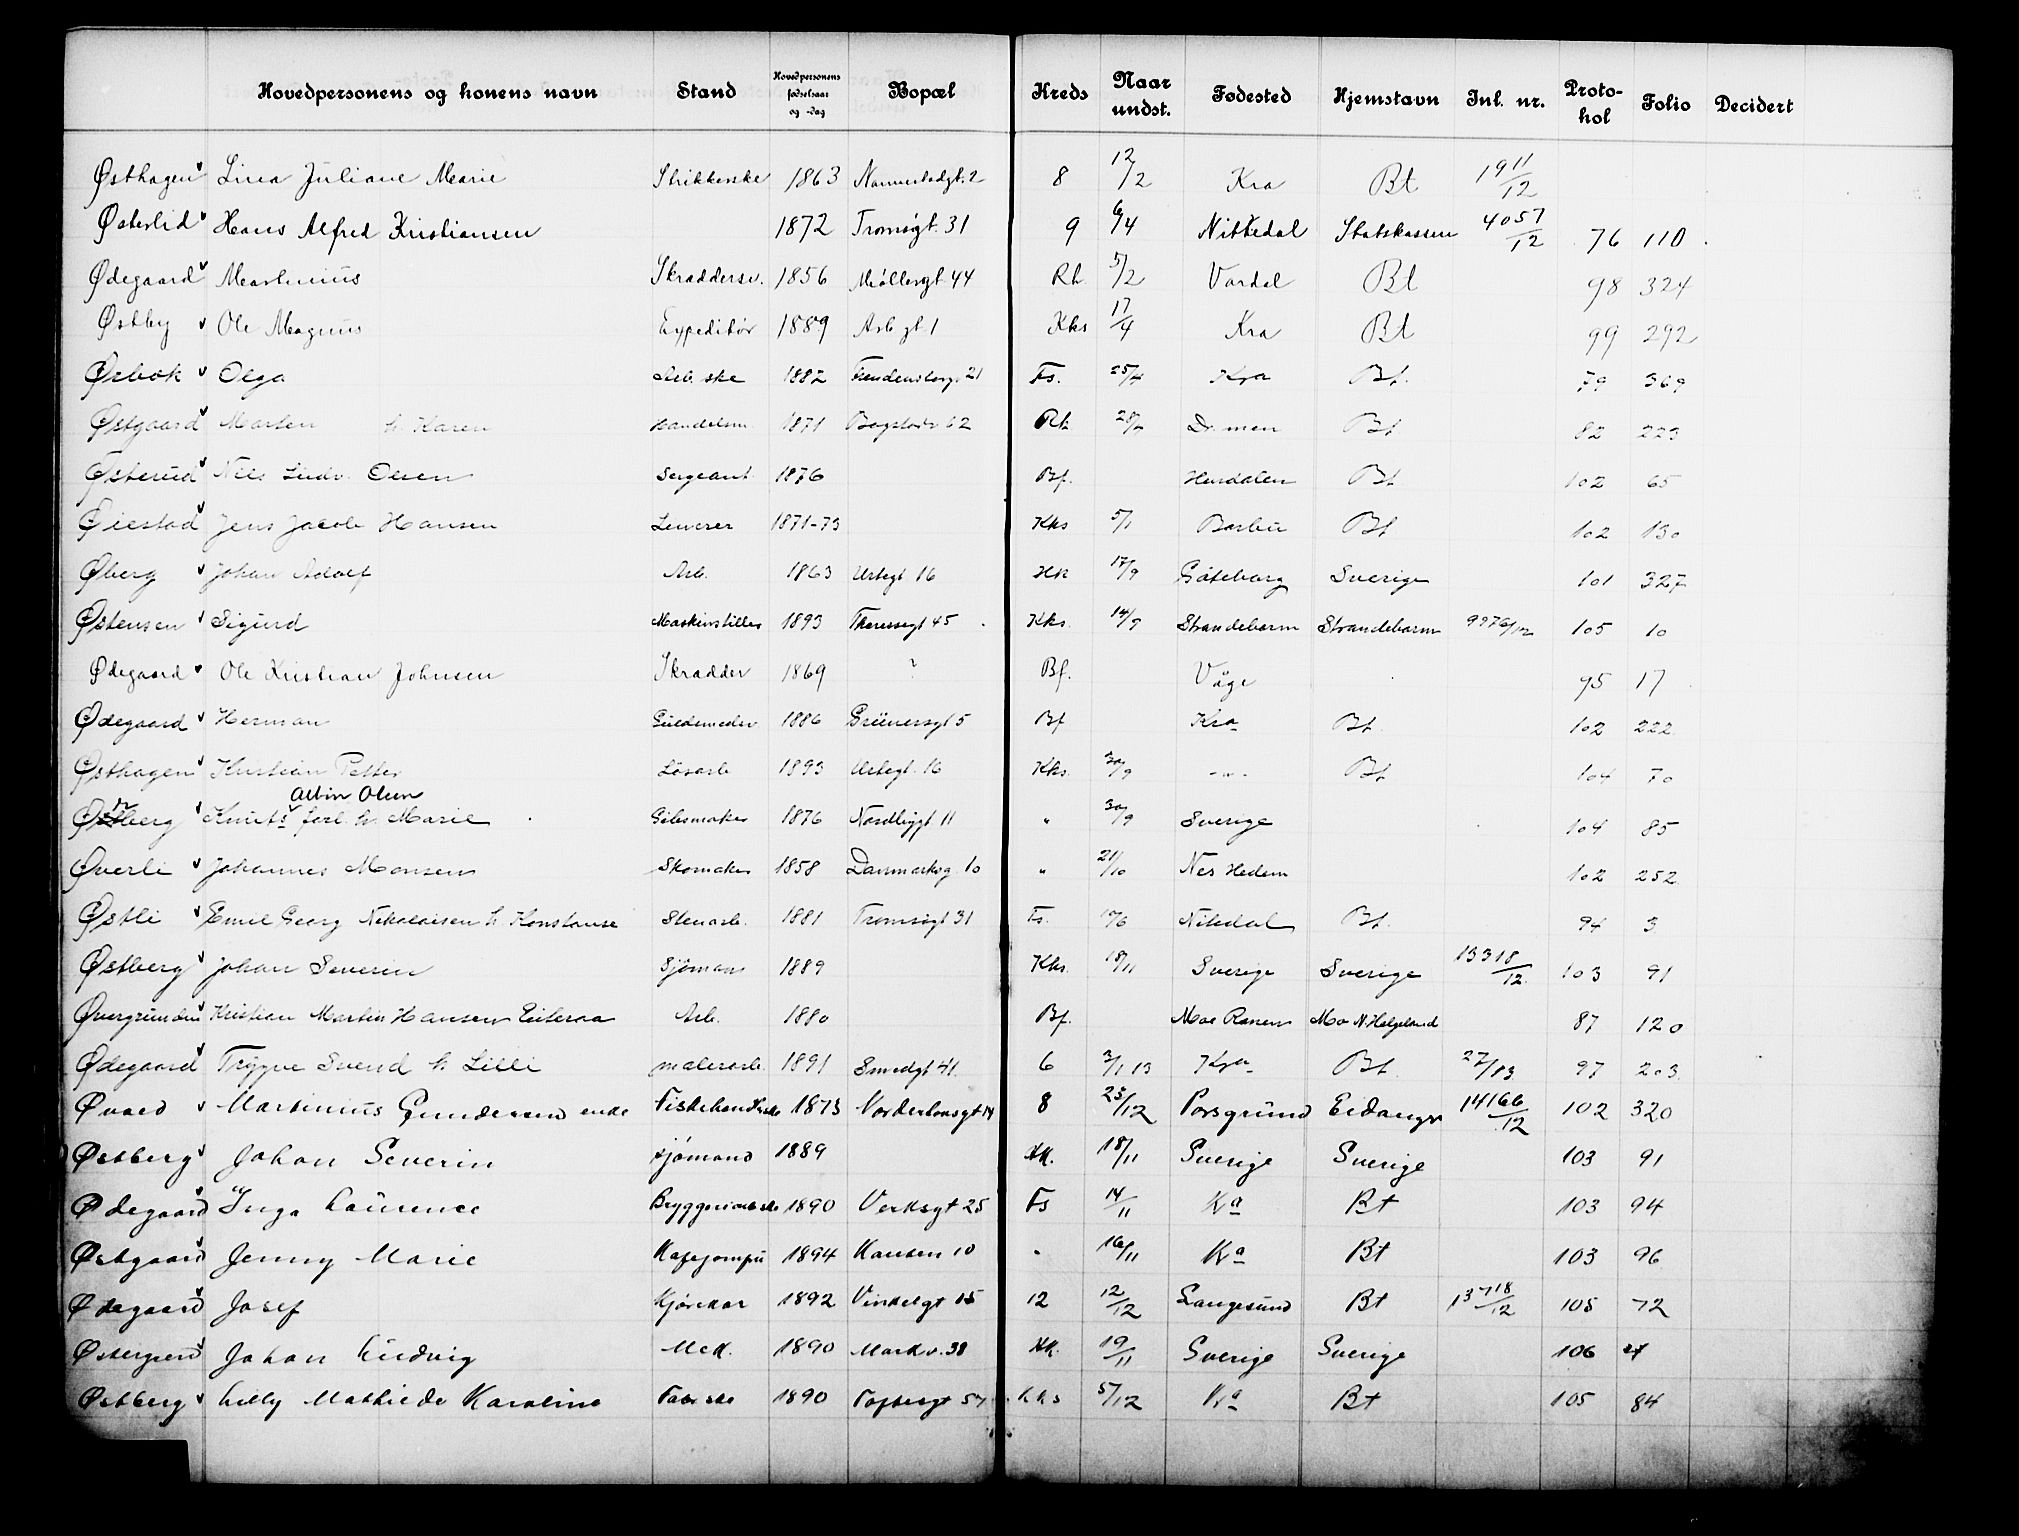 Hovedpersonens og konens navn Stand Hovedpersonens fødselsaar og -dag Bopæl Kreds Naar undst. Fødested Hjemstavn Inl. nr. Protokol Folio Decidert
Østhagen Lina Juliane Marie Strikkerske 1863 8 12/2 Kra Bt 1911/12
Østerlid Hans Alfred Kristiansen 1872 Tromsøgt. 31 9 6/4 Nittedal Statskassen 4057/12 76 110
Ødegaard Martinius Skræddersv. 1856 Møllergt 44 Rh 5/2 Vardal Bt 98 324
Østby Ole Magnus Expeditør 1889 Arb gt. 1 Kks 17/4 Kra Bt 99 292
Øsbak Olga Arb. ske 1882 21 Fs. 25/4 Kra Bt. 79 369
Østgaard Marten h. Karen Handelsm 1871 Bogstadv 62 Rh Dr.men Bt 82 223
Østerud Nils Ludv. Olsen Sergeant 1876 Bf. Hurdalen Bt 102 65
Øiestad Jens Jacob Hansen Leverer 1871-73 Kks 5/1 Barbu Bt 102 130
Øberg Johan Adolf Arb. 1863 Urtegt 16 Kk 17/9 Gøteborg Sverige 101 327
Østensen Sigurd Maskinstiller 1893 Theresesgt 45 Kks. 14/9 Strandebarm Strandebarm 9976/12 105 10
Ødegaard Ole Kristian Johnsen Skrædder 1869 ? Bf. Våge 95 17
Ødegaard Herman Guldsmedsv 1886 Grünersgt 5 Bf Kra Bt. 102 222
Østhagen Kristian Petter Løsarb 1893 Urtegt. 16 Kks. 30/9 -"- Bt 104 70
Albin Olsen
berg Knuts forl. h. Marie 1876 Nordbygt 11 " 30/9 Sverige 104 85
Øverli Johannes Monsen Skomaker 1858 Danmarksg. 10 " 21/10 Nes Hedem 102 252
Østli Emil Georg Nikolaisen h. Konstanse Stenarb. 1881 Tromsøgt 31 Fs. Nitedal Bt. 94 3
Østberg Johan Severin Sjømann 1889 Kks. 18/11 Sverige Sverige 13318/12 103 91
Øvergrunden Kristian Martin Hansen Eiteraa Arb. 1880 Bf. Moe Ranen Mo N. Helgeland 87 120
Ødegaard Trygve Svend h Lilli malerarb. 1891 Smedgt 41. 6 3/1 13 Kra Bt. 27/13 97 203
Øvald Martinius Gundersens enke 1873 8 23/12 Porsgrund Eidanger 14166/12 102 320
Østberg Johan Severin sjømand 1889 KK. 18/11 Sverige Sverige 103 91
Ødegaard Inga Laurence Bryggeriarb ske 1890 Verksgt 25 Fs 14/11 Ka Bt 103 94
Østgaard Jenny Marie 1894 Hausen 10 " 16/11 Ka Bt 103 96
Ødegaard Josef Kjørekar 1892 Vinkelgt 15 12 12/12 Langesund Bt 13718/12 105 72
Østergren Johan Ludvig Mek. 1890 Markv. 38 KK. 19/11 Sverige Sverige 106 24
Østberg Lelly Mathilde Karoline Fabr ske 1890 Toftesgt 57 Kks 5/12 Ka Bt 105 84